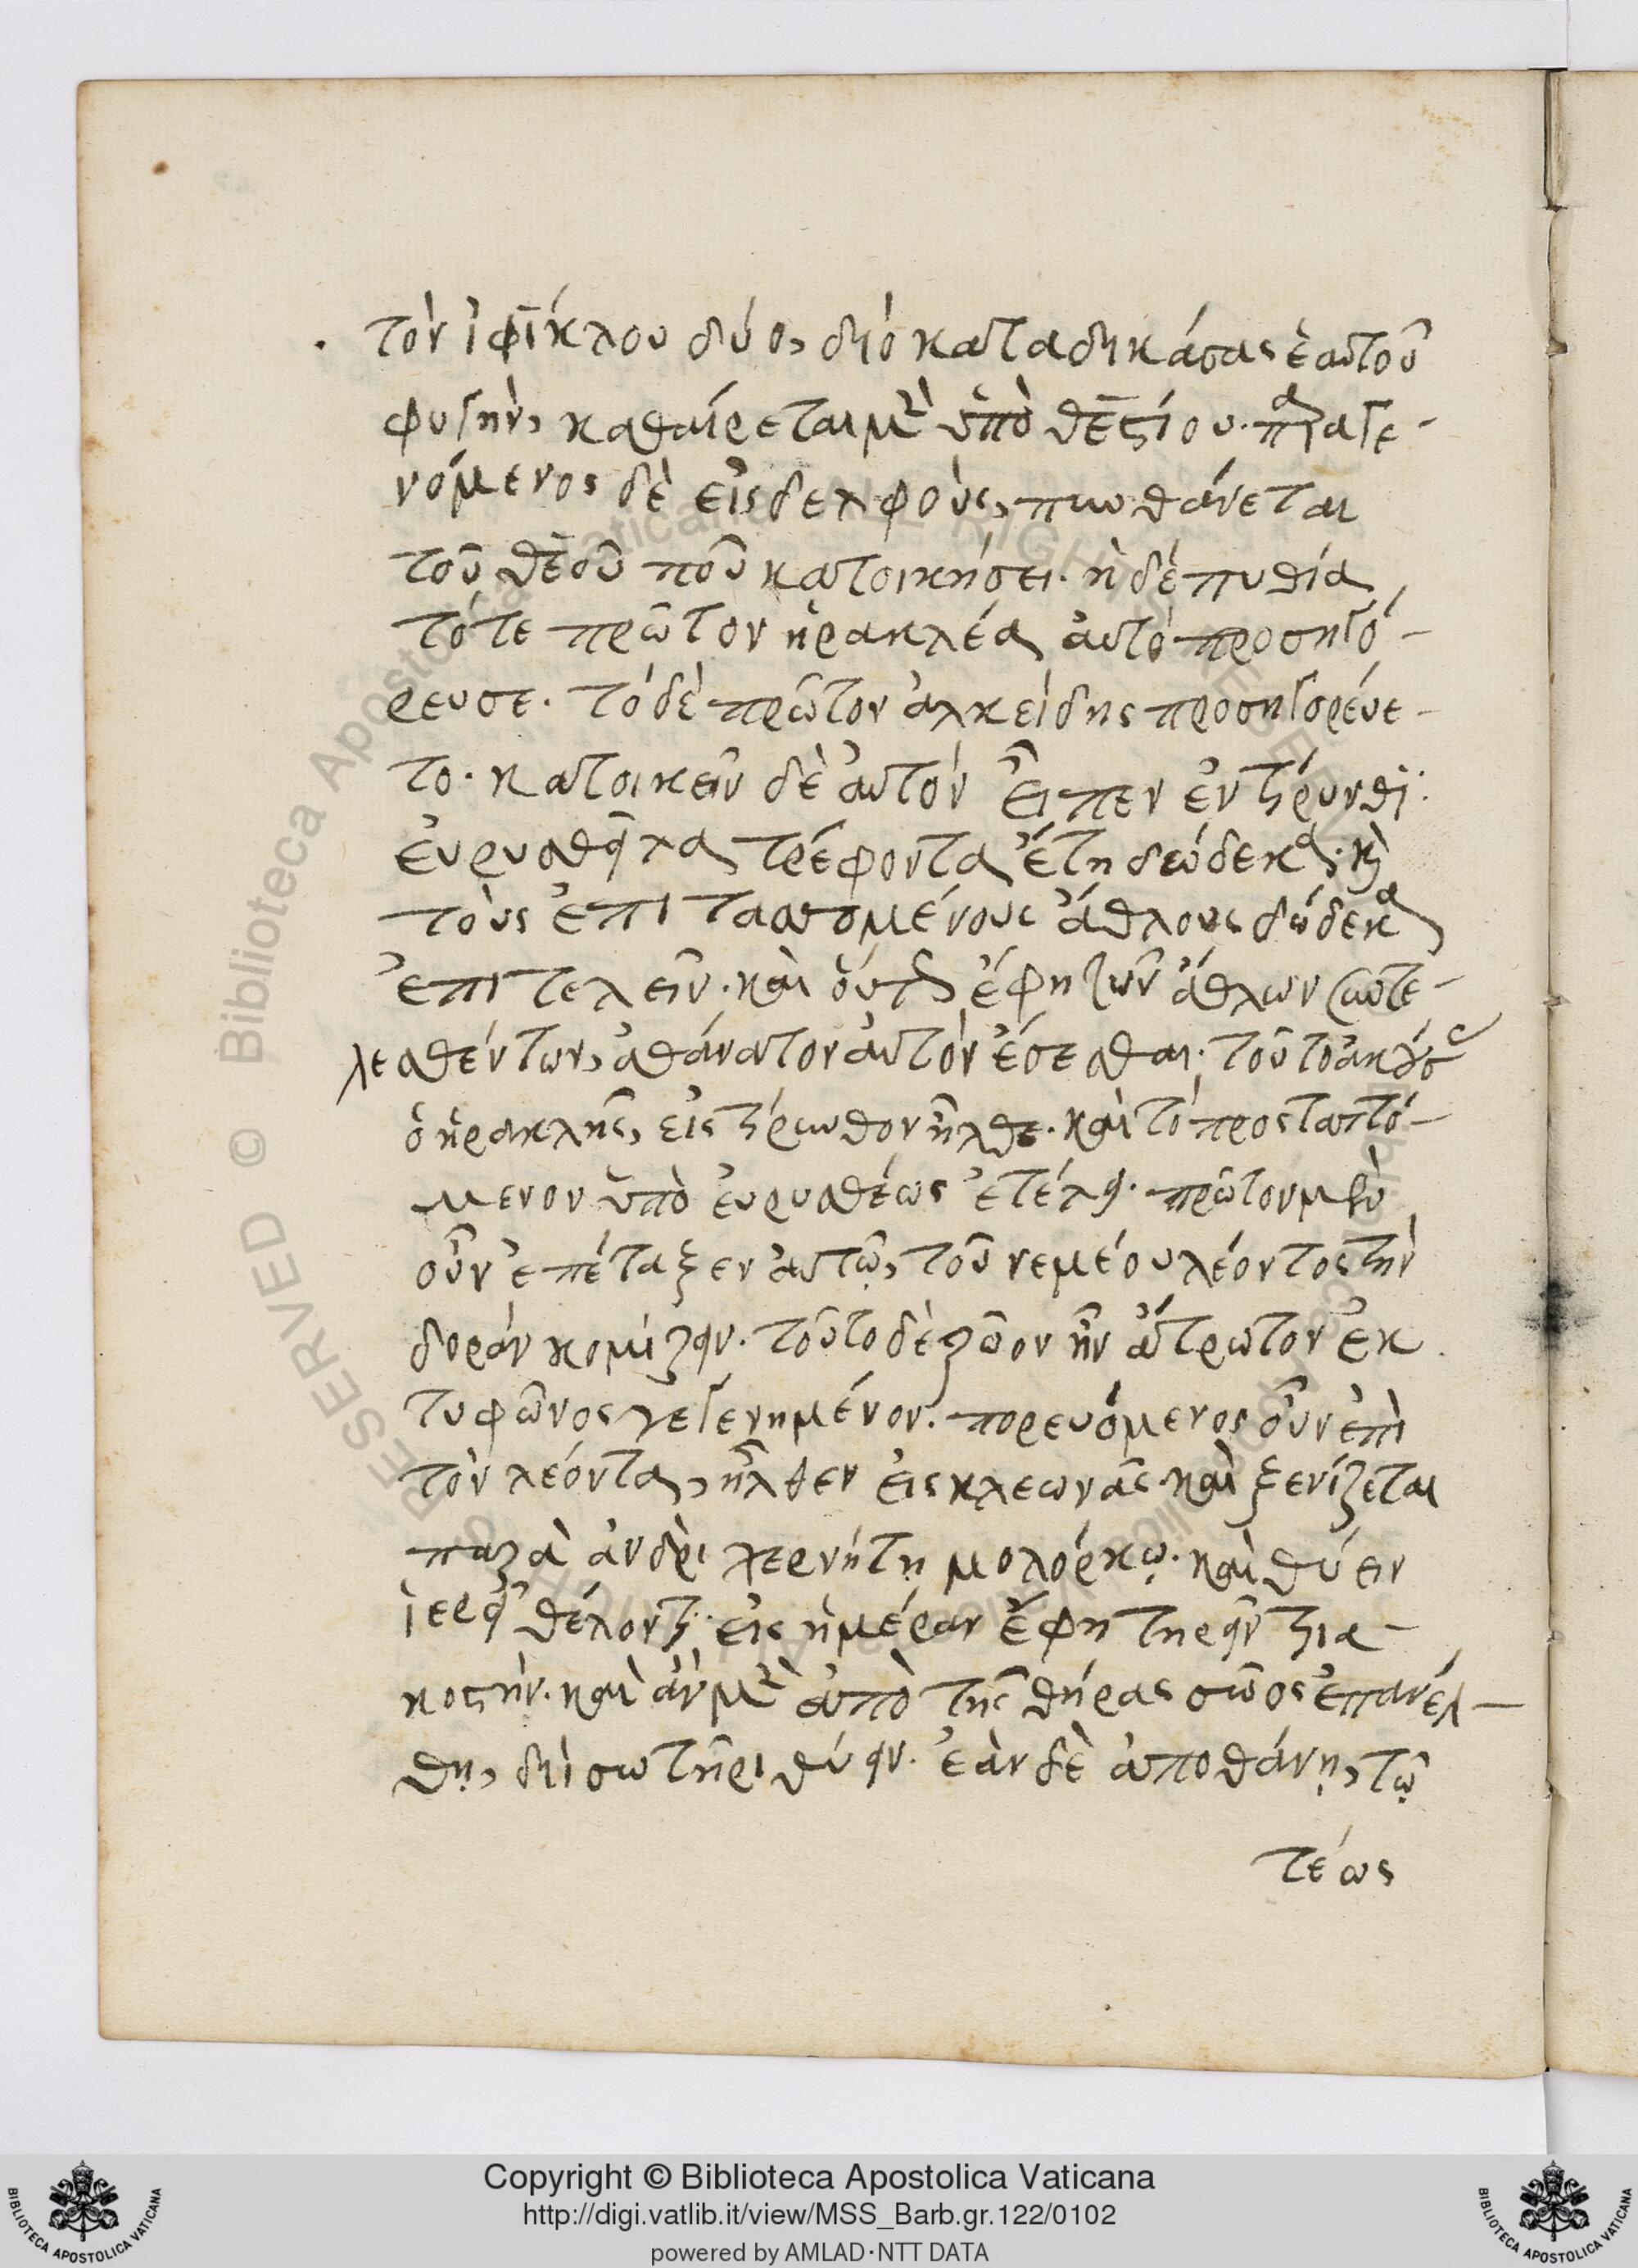 τὸν ἰφίκλου δύο, διὸ καταδικάσας ἑαυτοῦ
φυγὴν, καθαίρεται μὲν ὑπὸ θεστίου. παραγε-
νόμενος δὲ εἰς δελφοὺς, πυνθάνεται
τοῦ θεοῦ ποῦ κατοικήσει. ἡ δὲ πυθία
τότε πρῶτον ἡρακλέα αὐτὸ προσηγό-
ρευσε. τὸ δὲ πρῶτον ἀλκείδης προσηγορεύε-
το. κατοικεῖν δὲ αὐτὸν εἶπεν ἐν τίρυνθι.
εὐρυσθεῖ λα τρέφοντα ἔτη δώδεκα. καὶ
τοὺς ἐπιτασσομένους ἄθλους δώδεκα
ἐπιτελεῖν. καὶ οὕτως ἔφη τῶν ἄθλων συντε-
λεσθέντων, ἀθάνατον αὐτὸν ἔσεσθαι. τοῦτο ἀκούσας
ὁ ἡρακλῆς, εἰς τίρυνθον ἦλθε. καὶ τὸ προσταττό-
μενον ὑπὸ εὐρυσθέως ἐτέλει. πρῶτον μὲν
οὖν ἐπέταξεν αὐτῷ, τοῦ νεμέου λέοντος τὴν
δορὰν κομίζειν. τοῦτο δὲ ζῶον ἦν ἄτρωτον ἐκ
τυφῶνος γεγενημένον. πορευόμενος οὖν ἐπὶ
τὸν λέοντα, ἦλθεν εἰς κλεωνᾶς. καὶ ξενίζεται
παρὰ ἀνδρὶ χερνήτῃ μολόρκῳ. καὶ θύειν
ἱερεῖ θέλοντι. εἰς ἡμέραν ἔφη τηρεῖν τρια-
κοστὴν. καὶ ἂν μὲν ἀπὸ τῆς θήρας σῶος ἐπανέλ-
θῃ, διὶ σωτῆρι θύειν. ἐὰν δὲ ἀποθάνῃ, τῷ
τέως
Copyright © Biblioteca Apostolica Vaticana
http://digi.vatlib.it/view/MSS_Barb.gr.122/0102
powered by AMLAD·NTT DATA